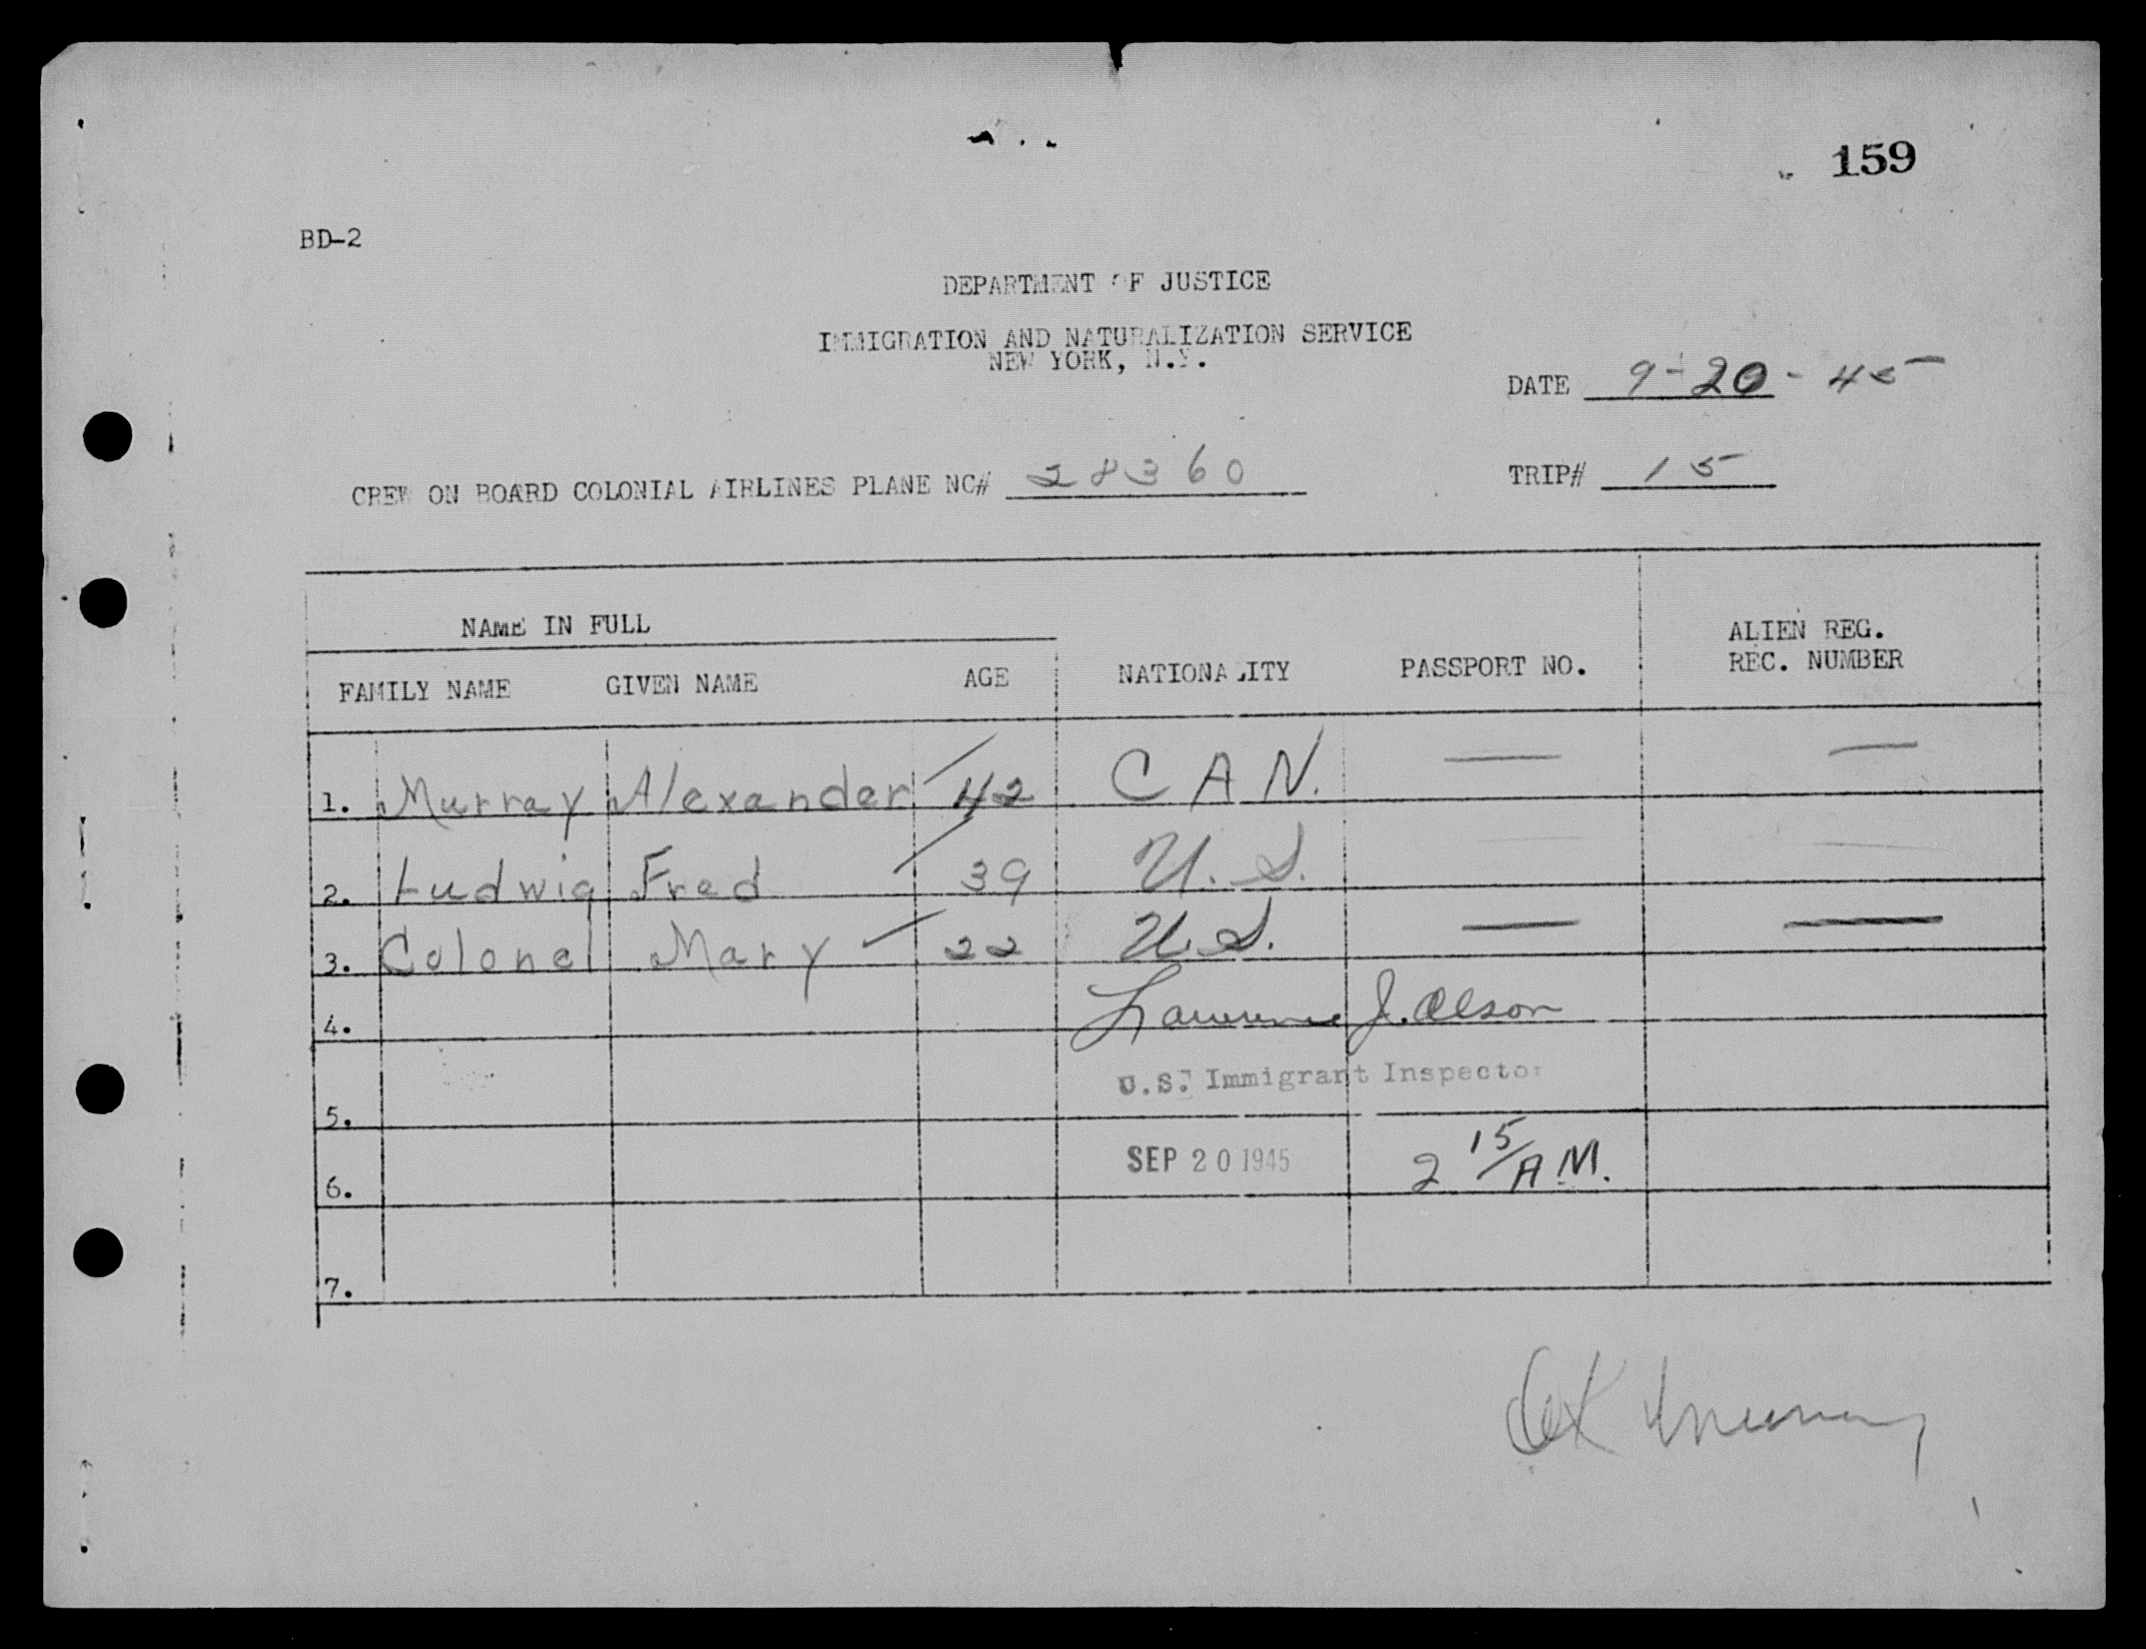 159
BD-2
DEPARTMENT OF JUSTICE
IMMIGRATION AND NATURALIZATION SERVICE
NEW YORK, N.Y.
DATE 9-20-45
CREW ON BOARD COLONIAL AIRLINES PLANE NC# 28360 TRIP# 15
NAME IN FULL
ALIEN REG.
FAMILY NAME GIVEN NAME AGE NATIONALITY PASSPORT NO. REC. NUMBER
1. Murray Alexander 42 CAN. — —
2. Ludwig Fred 39 U.S. — —
3. Colonel Mary 22 U.S. — —
4. Lawrence J. Olson
U.S. Immigrant Inspector
5.
SEP 20 1945 2 15/AM.
6.
7.
OK Murray